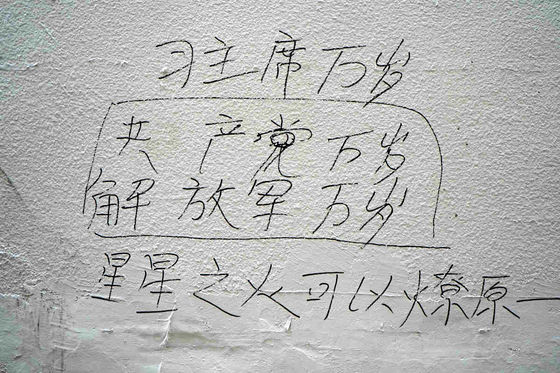 习主席万岁
共产党万岁
解放军万岁
星星之火可以燎原一